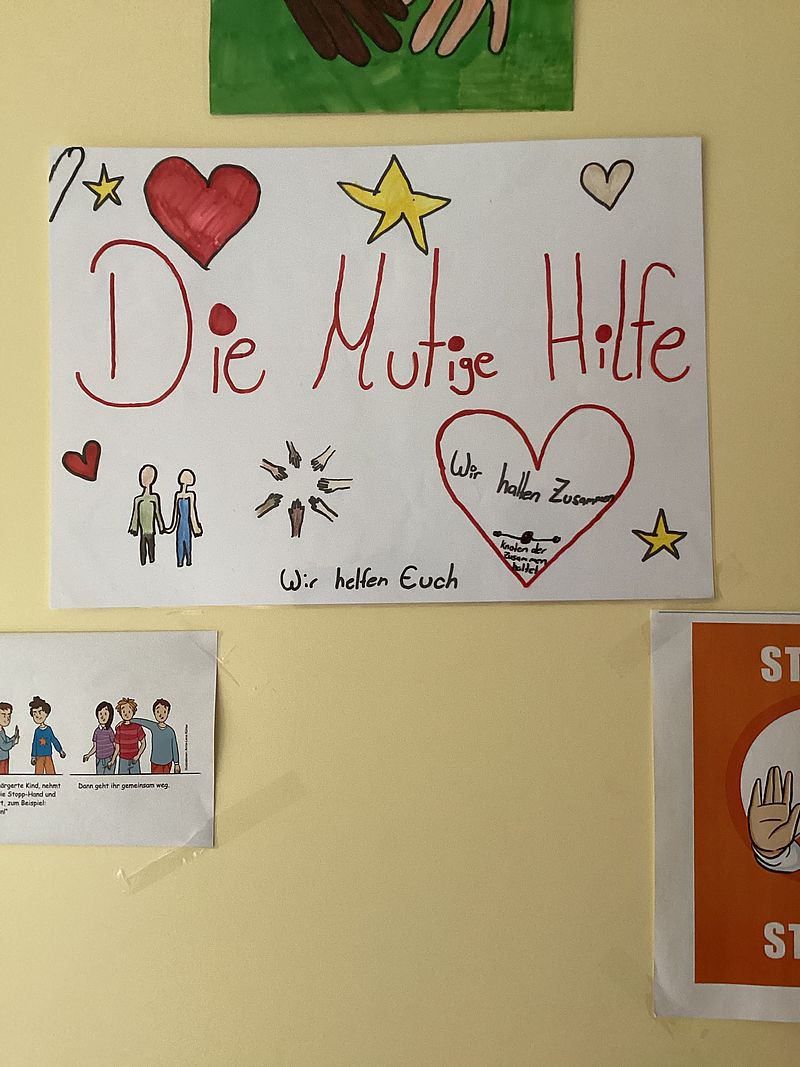 Die Mutige Hilfe
Wir halten Zusammen
knoten der
Zusammen
haltet
Wir helfen Euch
ärgerte Kind, nehmt
ie Stopp-Hand und
t, zum Beispiel:
n!"
Dann geht ihr gemeinsam weg.
ST
ST